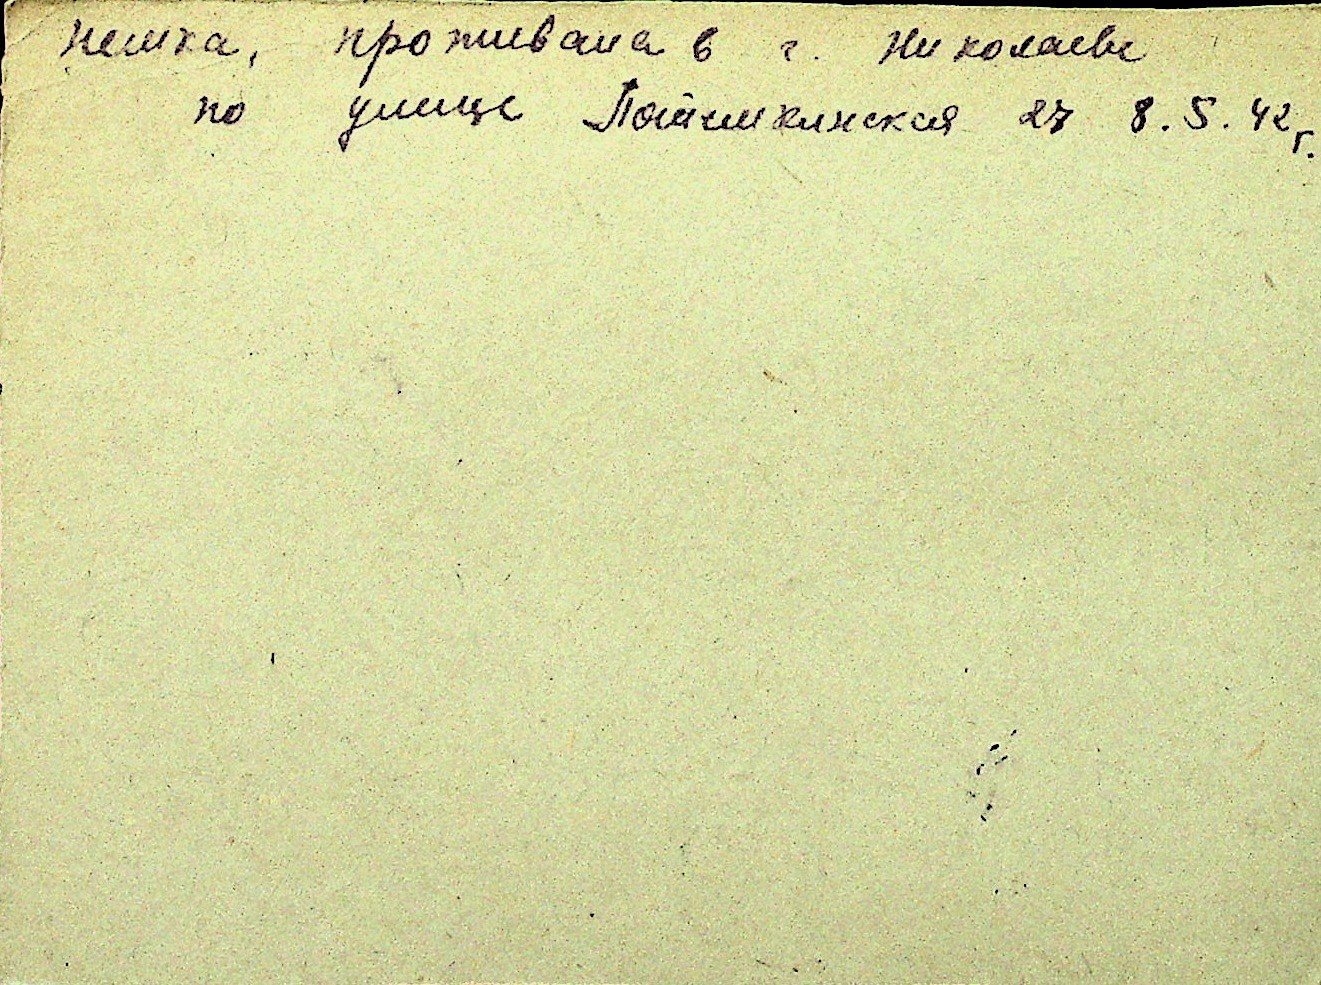 немка, проживала в г. Николаеве
по улице Потемкинская 27 8.5.42 г.